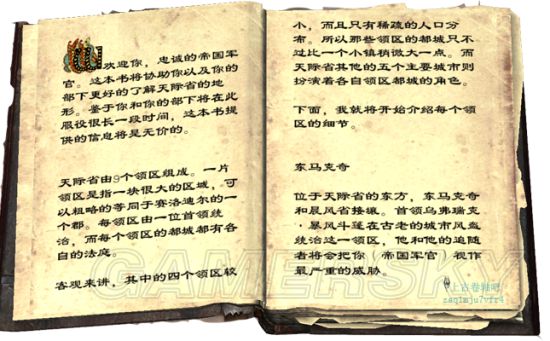 欢迎你，忠诚的帝国军
官。这本书将协助你以及你的
部下更好的了解天际省的地
形。鉴于你和你的部下将在此
服役很长一段时间，这本书提
供的信息将是无价的。
天际省由9个领区组成。一片
领区是指一块很大的区域，可
以粗略的等同于赛洛迪尔的一
个郡。每领区由一位首领统
治，而每个领区的都城都有各
自的法庭。
客观来讲，其中的四个领区较
小，而且只有稀疏的人口分
布。所以那些领区的都城只不
过比一个小镇稍微大一点。而
天际省其他的五个主要城市则
扮演着各自领区都城的角色。
下面，我就将开始介绍每个领
区的细节。
东马克奇
位于天际省的东方，东马克奇
和晨风省接壤。首领乌弗瑞克
·暴风斗篷在古老的城市风盔
统治这一领区，他和他的追随
者将会把你（帝国军官）视作
最严重的威胁。
GAMERSKY
上古卷轴吧
zaq1mju7vfr4